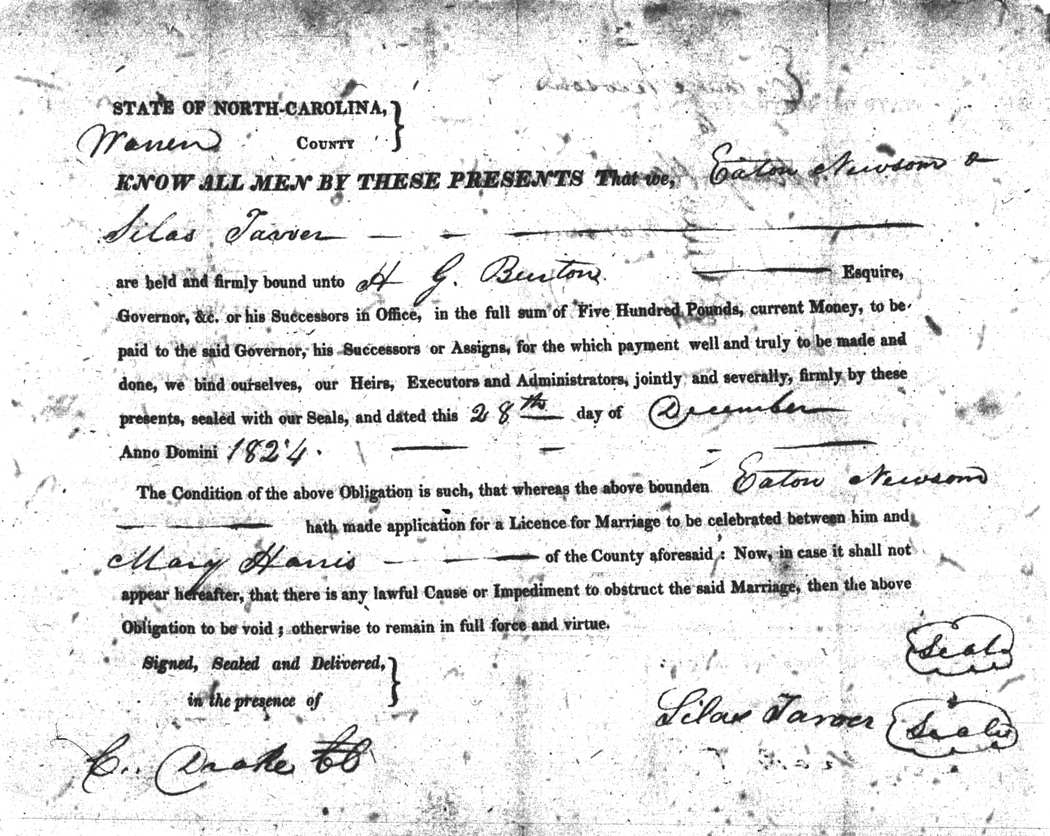 STATE OF NORTH-CAROLINA,
Warren COUNTY
KNOW ALL MEN BY THESE PRESENTS That we, Eaton Newsom &
Silas Tarver
are held and firmly bound unto H G. Burton Esquire,
Governor, &c. or his Successors in Office, in the full sum of Five Hundred Pounds, current Money, to be
paid to the said Governor, his Successors or Assigns, for the which payment well and truly to be made and
done, we bind ourselves, our Heirs, Executors and Administrators, jointly and severally, firmly by these
presents, sealed with our Seals, and dated this 28th day of December
Anno Domini 1824.
The Condition of the above Obligation is such, that whereas the above bounden Eaton Newsom
hath made application for a Licence for Marriage to be celebrated between him and
Mary Harris of the County aforesaid: Now, in case it shall not
appear hereafter, that there is any lawful Cause or Impediment to obstruct the said Marriage, then the above
Obligation to be void; otherwise to remain in full force and virtue.
Seal
Signed, Sealed and Delivered,
in the presence of
Silas Tarver Seal
C. Drake CC